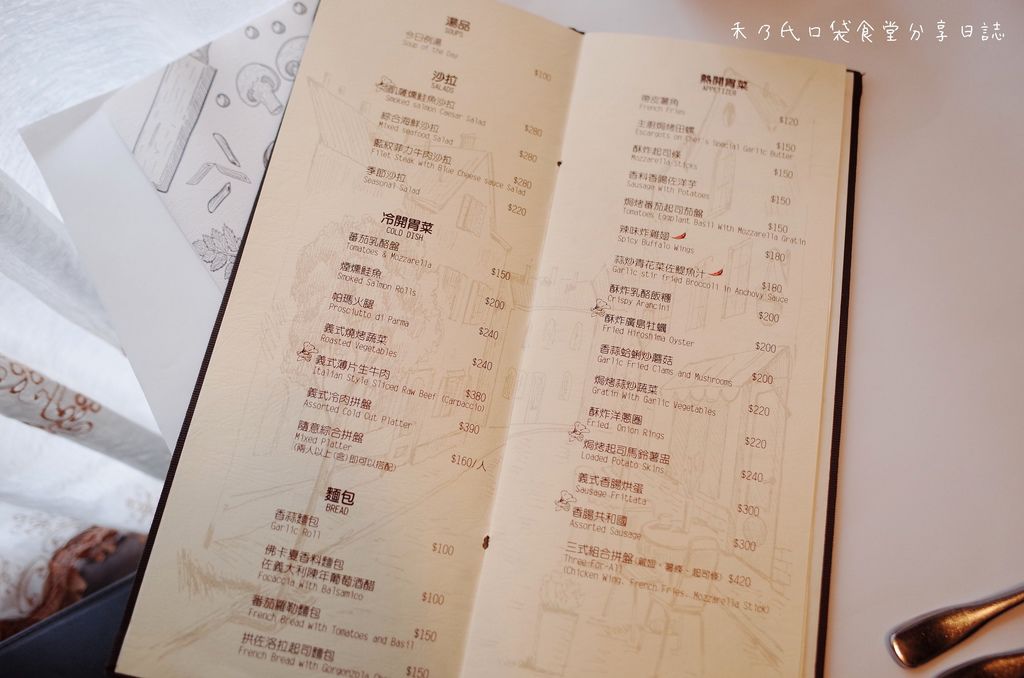 禾乃氏口袋食堂分享日誌
湯品
SOUPS
今日例湯
Soup of the Day $100
沙拉
SALADS
凱薩燻鮭魚沙拉
Smoked salmon Caesar Salad $280
綜合海鮮沙拉
Mixed seafood Salad $280
藍紋菲力牛肉沙拉
Filet Steak with Blue Cheese sauce Salad $280
季節沙拉
Seasonal Salad $220
冷開胃菜
COLD DISH
番茄乳酪盤
Tomatoes & Mozzarella $150
煙燻鮭魚
Smoked Salmon Rolls $200
帕瑪火腿
Prosciutto di Parma $240
義式燒烤蔬菜
Roasted Vegetables $240
義式薄片生牛肉
Italian Style Sliced Raw Beef (Carpaccio) $380
義式冷肉拼盤
Assorted Cold Cut Platter $390
隨意綜合拼盤
Mixed Platter
(兩人以上(含)即可以搭配) $160/人
麵包
BREAD
香蒜麵包
Garlic Roll $100
佛卡夏香料麵包
佐義大利陳年葡萄酒醋
Focaccia with Balsamico $100
番茄羅勒麵包
French Bread with Tomatoes and Basil $150
拱佐洛拉起司麵包
French Bread with Gorgonzola $150
熱開胃菜
APPETIZER
帶皮薯角
French Fries $120
主廚焗烤田螺
Escargots on Chef's Special Garlic Butter $150
酥炸起司條
Mozzarella Sticks $150
香料香腸佐洋芋
Sausage with Potatoes $150
焗烤番茄起司茄盤
Tomatoes Eggplant Basil with Mozzarella Gratin $150
辣味炸雞翅
Spicy Buffalo Wings $180
蒜炒青花菜佐鯷魚汁
Garlic stir fried Broccoli in Anchovy Sauce $180
酥炸乳酪飯糰
Crispy Arancini $200
酥炸廣島牡蠣
Fried Hiroshima Oyster $200
香蒜蛤蜊炒蘑菇
Garlic Fried Clams and Mushrooms $200
焗烤蒜炒蔬菜
Gratin With Garlic Vegetables $220
酥炸洋蔥圈
Fried. Onion Rings $220
焗烤起司馬鈴薯盅
Loaded Potato Skins $240
義式香腸烘蛋
Sausage Frittata $300
香腸共和國
Assorted Sausage $300
三式組合拼盤(雞翅、薯條、起司條) $420
Three-For-All
(Chicken Wing. French Fries. Mozzarella Stick)